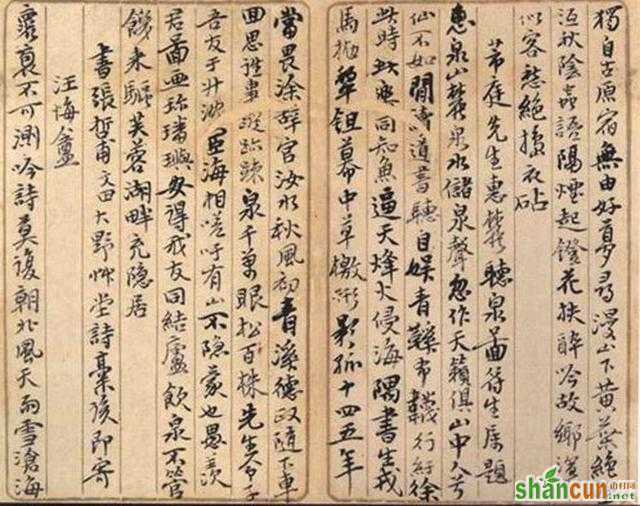 獨自古原宿無由好夢尋漫山下黃葉絕
秋陰蟲語隔煙起鐙花扶醉吟故鄉
似客愁絕擣衣砧
芾庭先生惠麓聽泉圖待生屬題
惠泉山麓泉水儲泉聲忽作天籟俱山中人兮
仙不如閒道書聽自娛青鞵布韈行紆徐
此時此興同知魚逼天烽火侵海隅書生戎
馬拋犂鉏幕中草檄影孤十四五年
當畏涂辭官汝水秋風初青溪德政隨下車
回思往事蹤跡疎泉千萬眼松百株先生
吾友于海相嗟吁有山不隱蒙也愚羨
君圖畫珍璠璵安得我友同結廬飲泉不管
饑來驅芙蓉湖畔充隱居
書張哲甫文田大野艸堂詩稾後即寄
汪悔盦
袞袞不可測吟詩莫復朝北風天雨雪滄海
shancun
山村网
.net